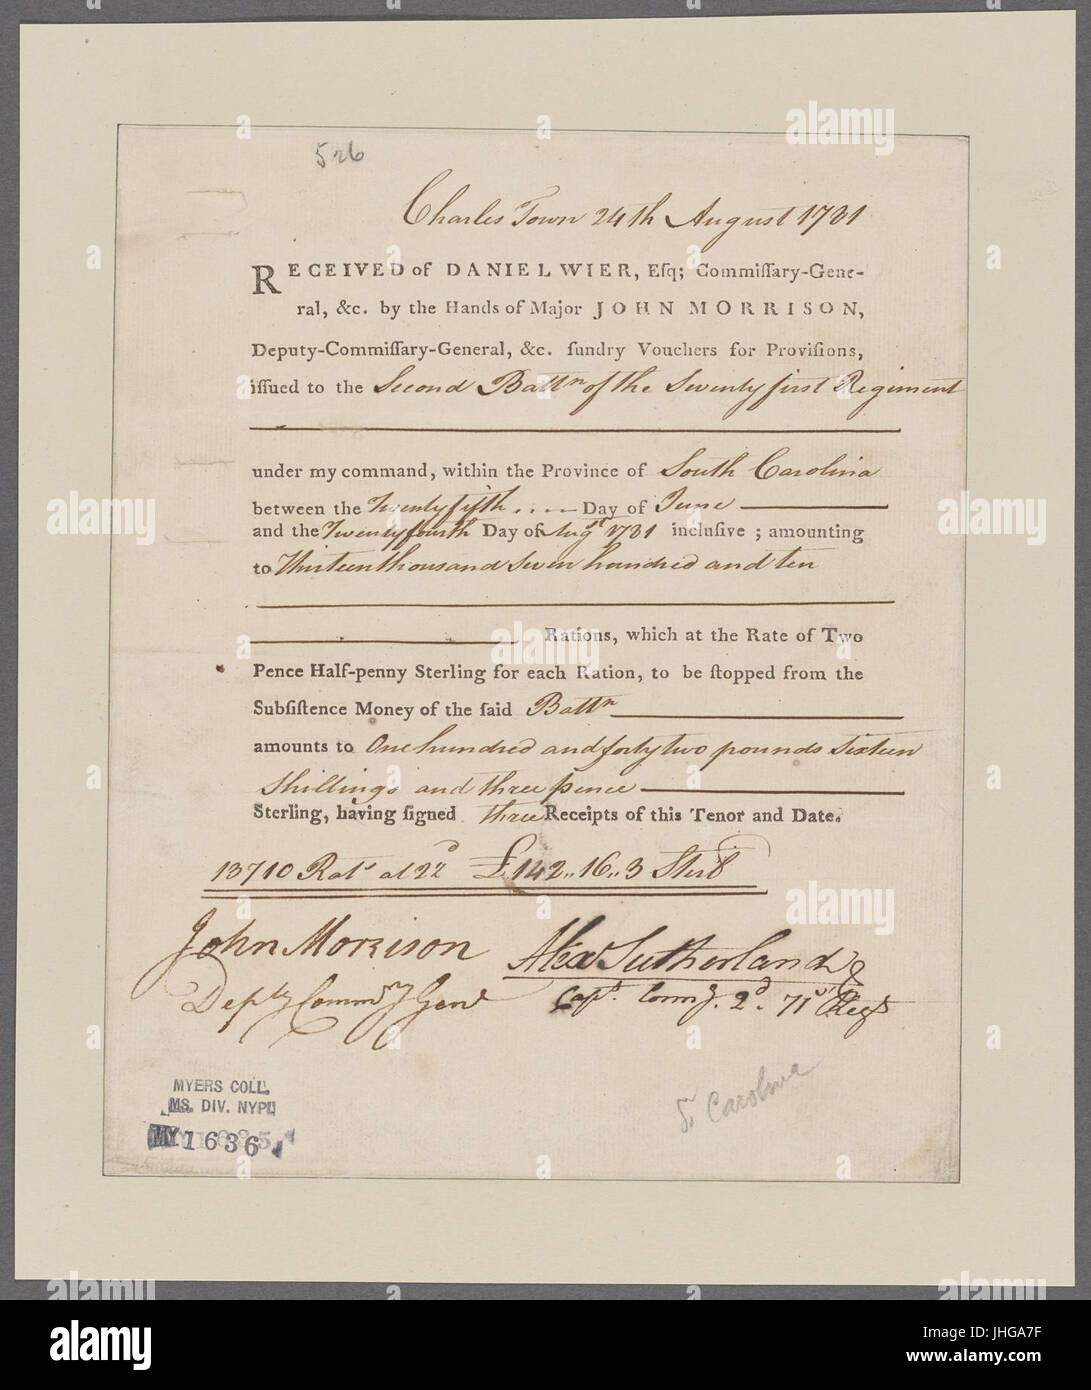 526
Charles Town 24th August 1781
RECEIVED of DANIEL WIER, Eſq; Commiſſary-Gene-
ral, &c. by the Hands of Major JOHN MORRISON,
Deputy-Commiſſary-General, &c. ſundry Vouchers for Proviſions,
iſſued to the Second Battn of the Seventy first Regiment
under my command, within the Province of South Carolina
between the Twenty fifth .... Day of June
and the Twenty fourth Day of Augst 1781 incluſive; amounting
to Thirteen thousand seven hundred and ten
Rations, which at the Rate of Two
Pence Half-penny Sterling for each Ration, to be ſtopped from the
Subſiſtence Money of the ſaid Battn
amounts to One hundred and forty two pounds sixteen
Shillings and three pence
Sterling, having ſigned three Receipts of this Tenor and Date.
13710 Rats at 2½d £142..16..3 Sterg
John Morrison
Depty Commsy Genl
Alexr Sutherland
Capt. Comg. 2d. 71st Regt
S. Carolina
MYERS COLL.
MS. DIV. NYPL
MY 1636
alamy
a
alamy
JHGA7F
www.alamy.com